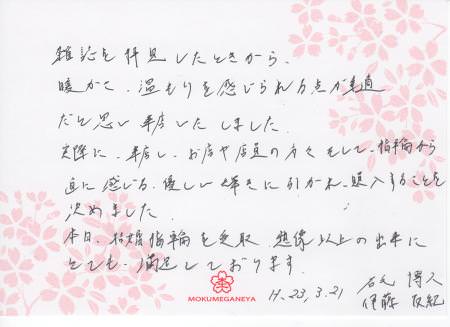 雑誌を拝見したときから、
暖かく、温もりを感じられる点が素適
だと思い来店いたしました。
実際に、来店し、お店や店員の方々をして、指輪から
直に感じる、優しい輝きに引かれ、購入することを
決めました。
本日、結婚指輪を受取、想像以上の出来に
とても、満足しております。
H.23,3.21
博人
伊藤
MOKUMEGANEYA